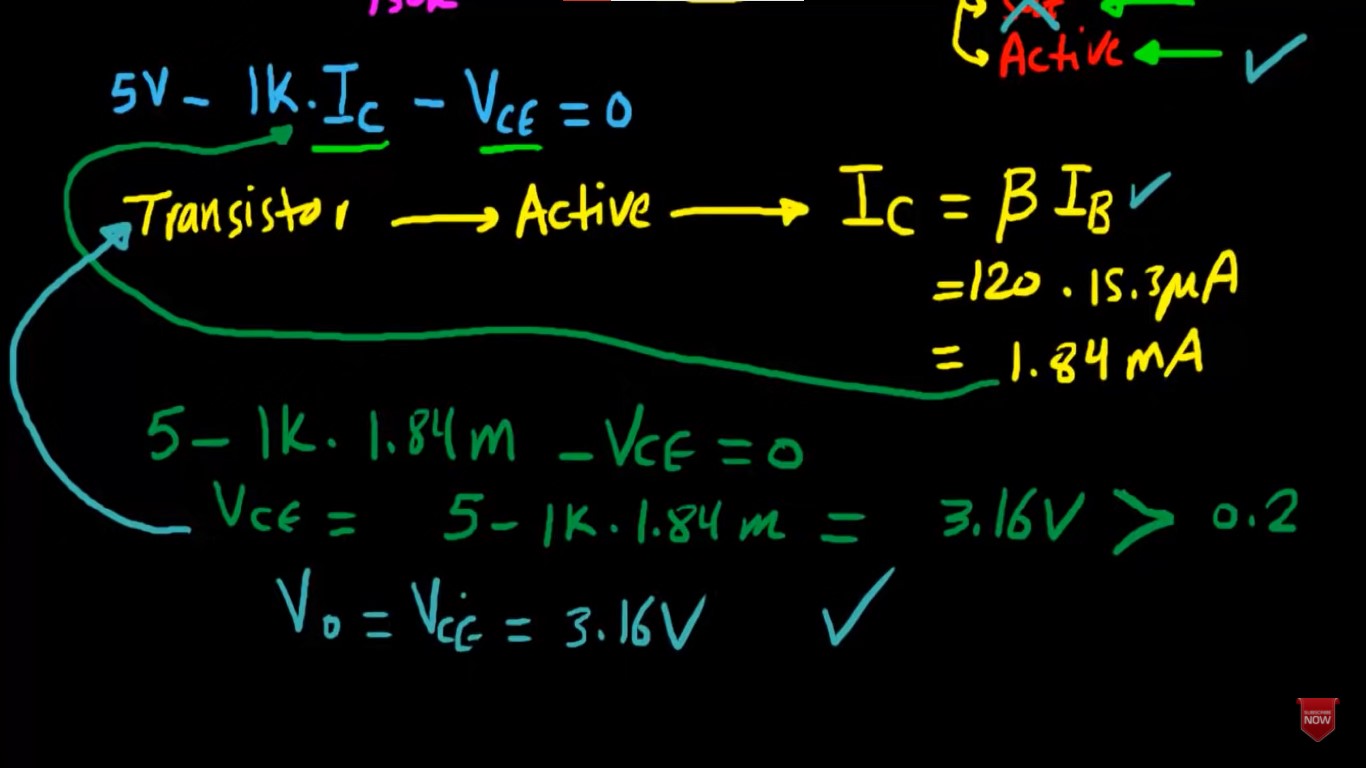 Active
5V - 1K . IC - VCE = 0
Transistor → Active → IC = β IB ✓
= 120 . 15.3μA
= 1.84 mA
5 - 1K . 1.84 m - VCE = 0
VCE = 5 - 1K . 1.84 m = 3.16V > 0.2
Vo = VCE = 3.16V ✓
SUBSCRIBE
NOW